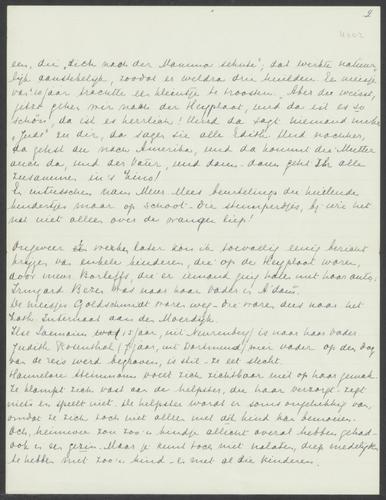 2
een, die "sich nach der Mamma sehnte", dat werkte natuur-
lijk aanstekelijk, zoodat er weldra drie huilden. Een meisje
van 10 jaar trachtte een kleintje te troosten. Aber du weisst,
jetzt gehen wir nach der Heyplaat, und da ist es so
schön, da ist es herrlich! Und da sagt niemand mehr
"Jude" zu dir, da sagen sie alle Edith. Und nachher,
da gehst du nach Amerika, und da kommt die Mutter
auch da, und der Vater, und dann - dann geht Ihr alle
zusammen in's Kino!
En intusschen nam Mevr. Mees beurtelings de huilende
kindertjes maar op schoot. Die stumperdjes, bij wie het
nat niet alleen over de wangen liep!
Ongeveer weken later kon ik toevallig eenig bericht
krijgen van enkele kinderen, die op de Heyplaat waren,
door mevr. Borleffs, die er iemand ging halen met haar auto:
Irmgard was naar haar vader in A'dam.
De meisjes Goldschmidt waren weg - die waren dus naar het
Kath. Internaat aan de Moerdijk.
Ilse 12 jaar, uit Nürenberg, is naar haar vader
Judith Rosenthal, jaar, uit Dortmund, wier vader op den dag
van de reis werd begraven, is stil - ze eet slecht.
Hannelore voelt zich zichtbaar niet op haar gemak.
Ze klampt zich vast aan de helpster, die haar verzorgt - zegt
niets en speelt niet. De helpster wordt er soms ongelukkig van,
omdat ze zich toch niet alleen met dit kind kan bemoeien.
Och, hiervoor zou zoo'n kindje allicht overal hebben gehad -
ook in een gezin. Maar je kunt toch niet nalaten, diep medelijden
te hebben met zoo'n kind - en met al die kinderen.